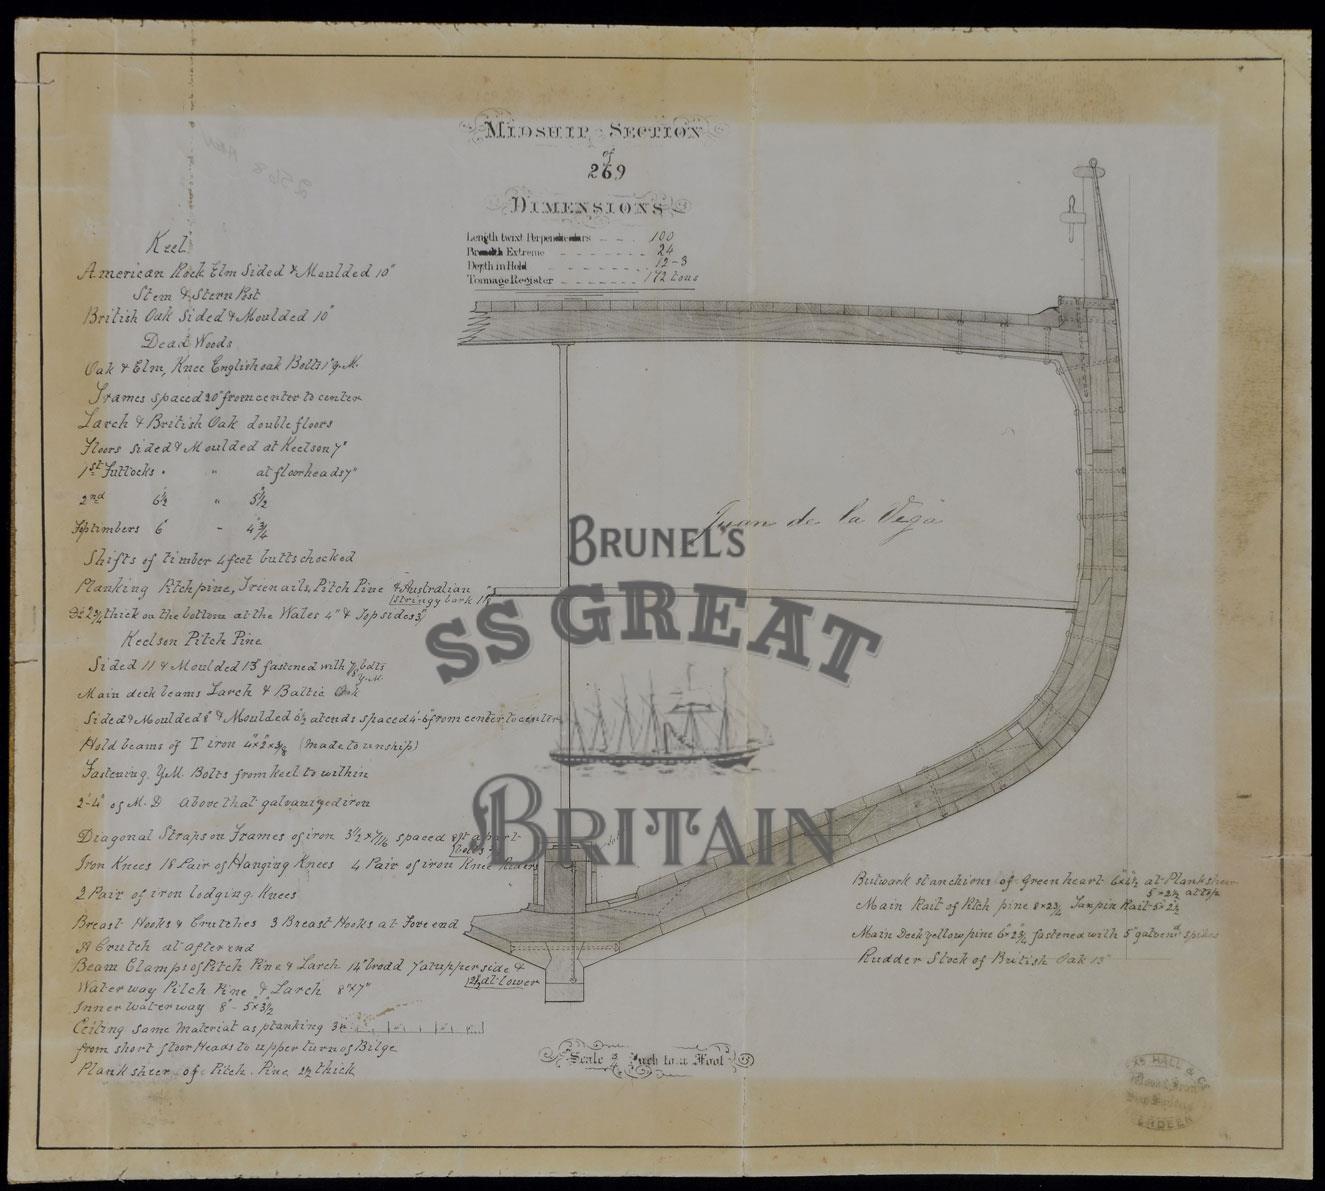 MIDSHIP SECTION
of
269
DIMENSIONS
Length twixt Perpendiculars 100
Breadth Extreme 24
Depth in Hold 12-3
Tonnage Register 172 tons
Keel
American Rock Elm Sided & Moulded 10"
Stem & Stern Post
British Oak Sided & Moulded 10"
Dead Woods
Oak & Elm, Knee English oak Bolts 1" y.M.
Frames spaced 20" from center to center
Larch & British Oak double floors
Floors sided & Moulded at Keelson 7"
1st Futtocks " " at floorheads 7"
2nd 6½ " 5½"
Toptimbers 6" " 4¾"
Shifts of timber 4 feet butts chocked
Planking Pitch pine, Treenails, Pitch Pine & Australian
stringy bark
Do 2¾ thick on the bottom at the Wales 4" & Topsides 3"
Keelson Pitch Pine
Sided 11 & Moulded 13" fastened with 7/8 bolts
Y.M.
Main deck beams Larch & Baltic Oak
Sided & Moulded 8" & Moulded 6½ at ends spaced 4'-6" from center to center
Hold beams of T iron 4"x2"x3/8 (made to unship)
Fastening. Y.M. Bolts from keel to within
2'-4" of M. D above that galvanized iron
Diagonal Straps on Frames of iron 3½ x 7/16 spaced apart
Iron Knees 18 Pair of Hanging Knees 4 Pair of iron Knee Riders
2 Pair of iron lodging Knees
Breast Hooks & Crutches 3 Breast Hooks at Fore end
A Crutch at after end
Beam Clamps of Pitch Pine & Larch 14" broad 7" at upper side &
2½ at lower
Waterway Pitch Pine & Larch 8"x7"
Inner waterway 8" - 5"x3½"
Ceiling same material as planking
from short floor Heads to upper turn of Bilge
Plank sheer of Pitch Pine 2½ thick
Juan de la Vega
BRUNEL'S
SS GREAT
BRITAIN
Bulwark stanchions of Greenheart 6"x4½ at Plank sheer
5"x2½ at top
Main Rail of Pitch pine 8"x2¾ Tanpin Rail 5"x2½
Main Deck yellow pine 6"x2¾ fastened with 5" galvend spikes
Rudder Stock of British Oak 13"
Scale Inch to a Foot
HALL & Co